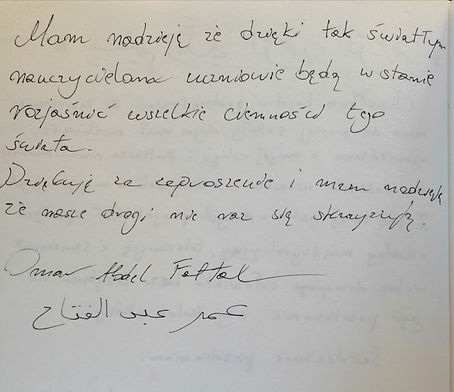 Mam nadzieję że dzięki tak światłym
nauczycielom uczniowie będą w stanie
rozjaśnić wszelkie ciemności tego
świata.
Dziękuję za zaproszenie i mam nadzieję
że nasze drogi nie raz się skrzyżują.
Omar Abdel Fattah
عمر عبد الفتاح